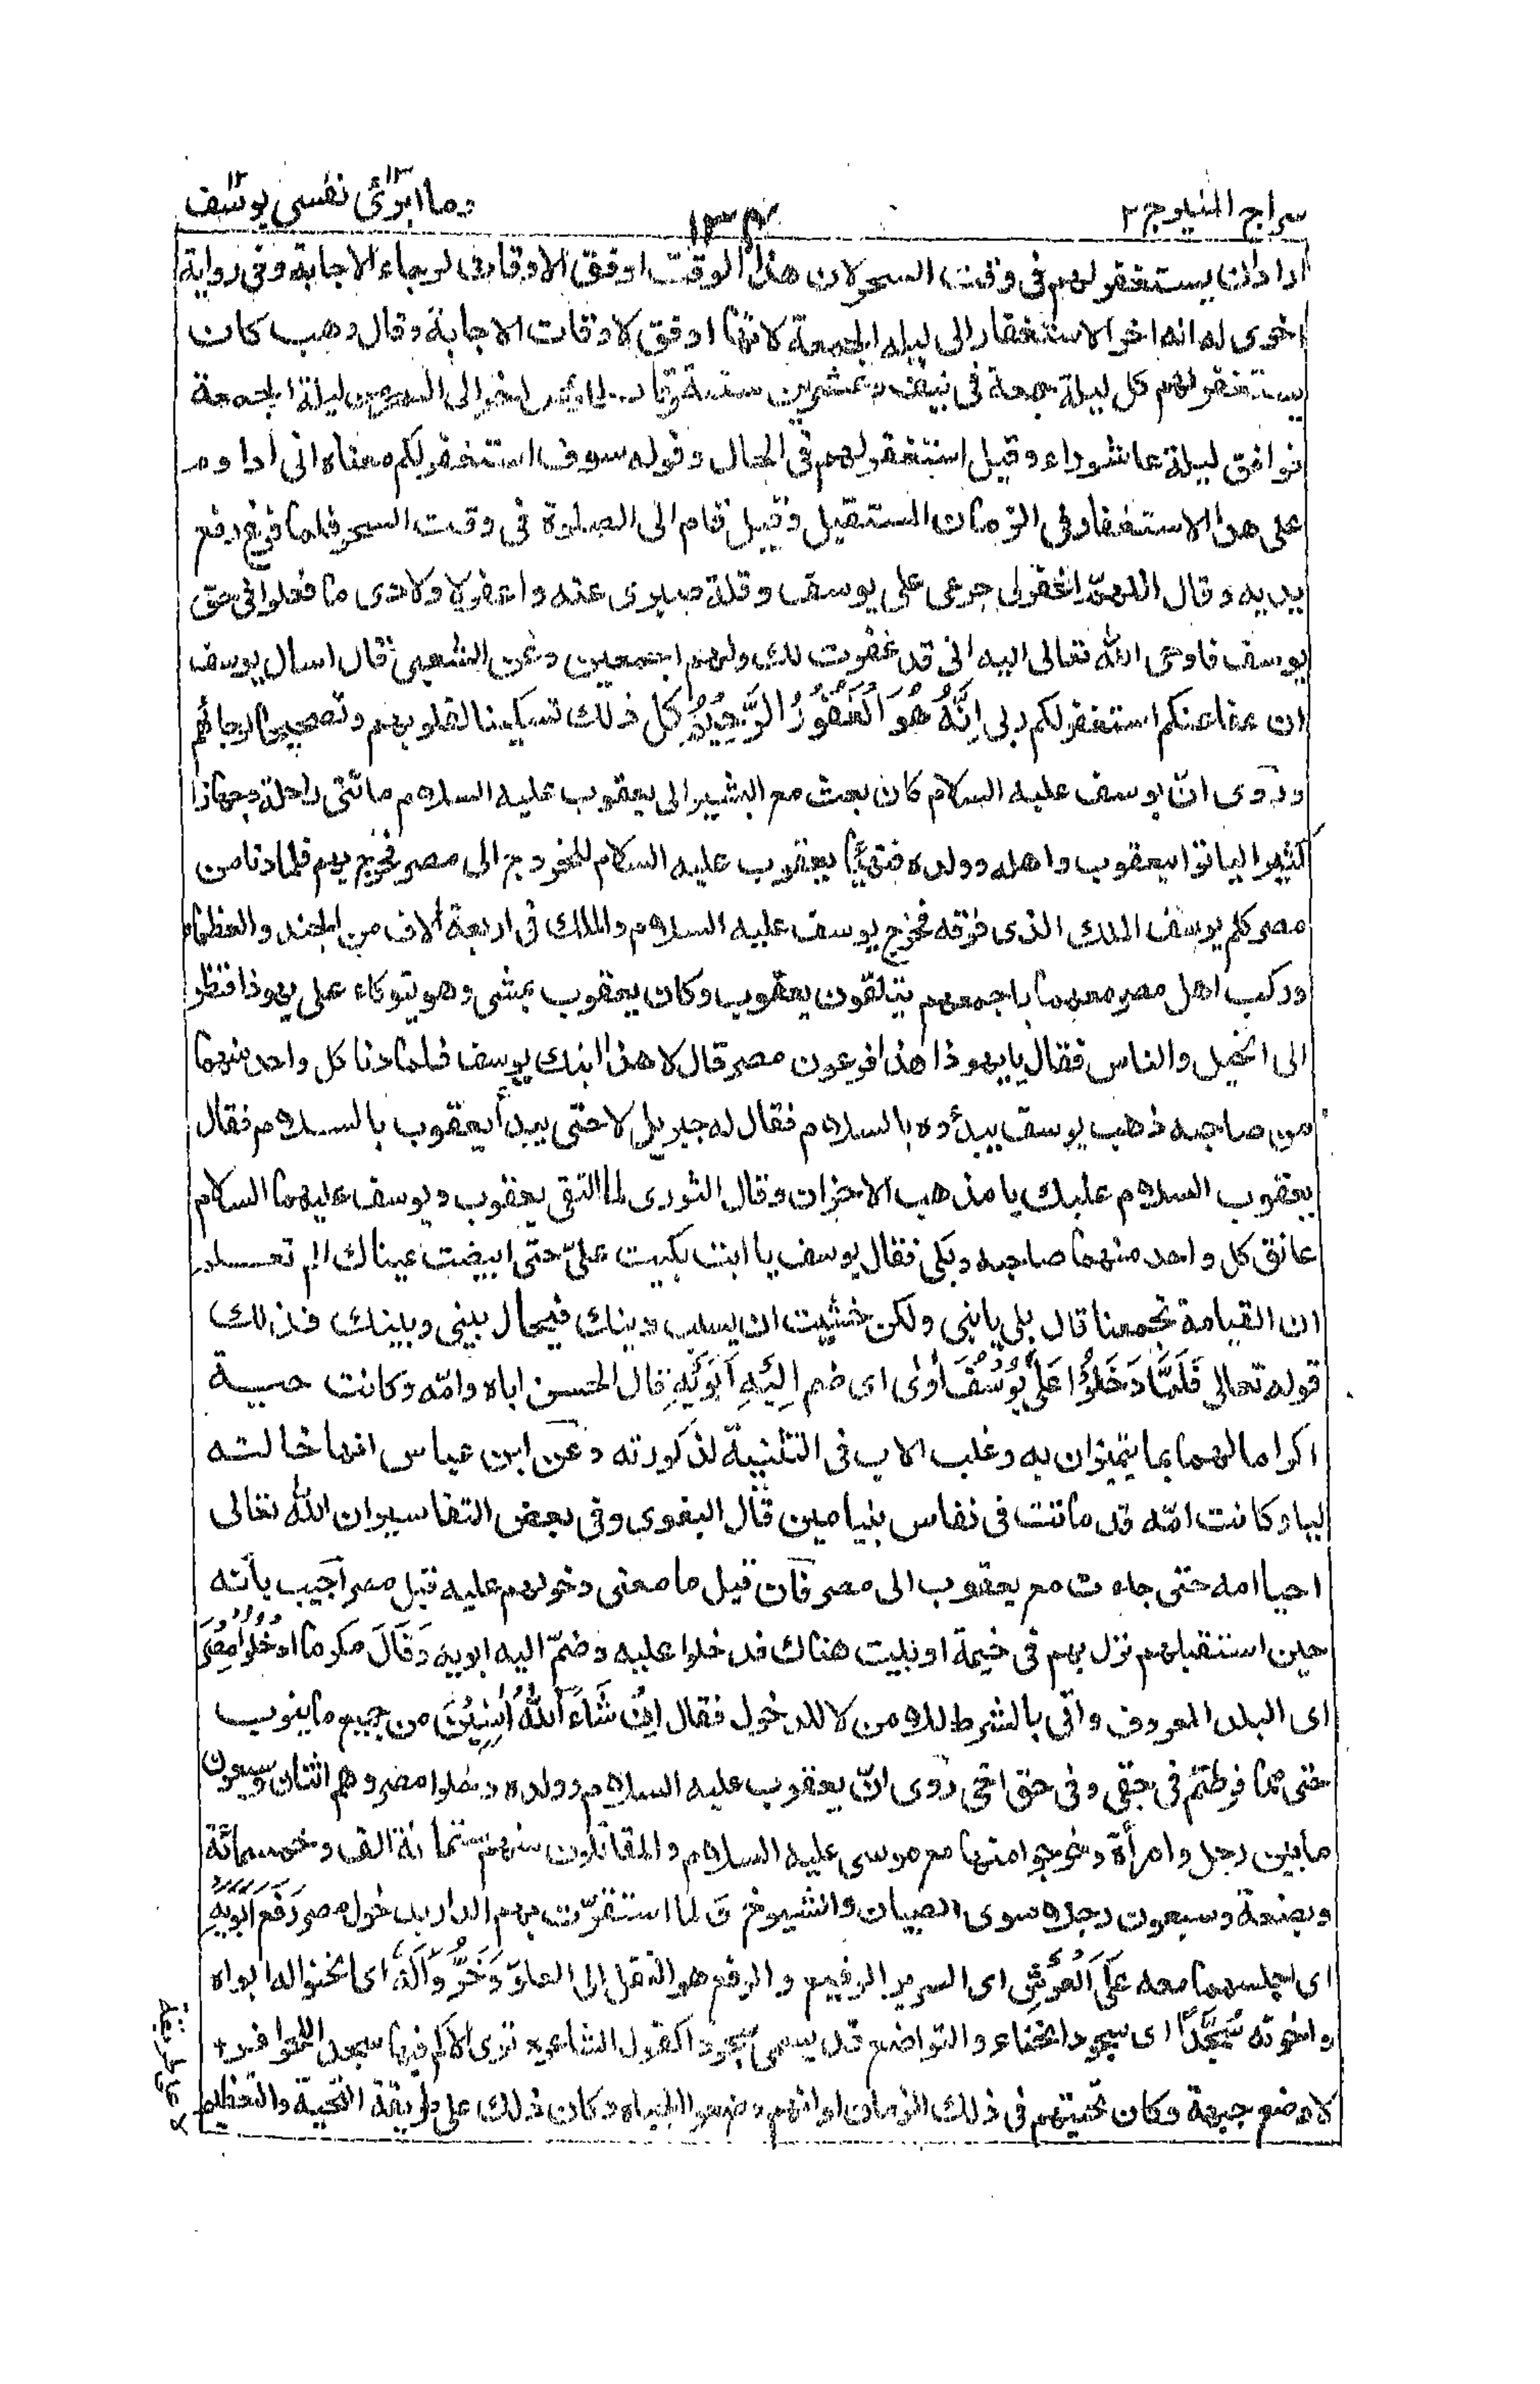 سراج المنير ج ٢
١٣٤
وما ابرئ نفسى ١٣ يوسف ١٢
اراد ان يستغفر لهم فى وقت السحر لان هذا الوقت اوفق الاوقات لرجاء الاجابة وفى رواية
اخرى له انه اخر الاستغفار الى ليلة الجمعة لانها اوفق لاوقات الاجابة وقال وهب كان
يستغفر لهم كل ليلة جمعة فى نيف وعشرين سنة وقال اخر الى السحر من ليلة الجمعة
فوافق ليلة عاشوراء وقيل استغفر لهم فى الحال وقوله سوف استغفر لكم معناه انى اداوم
على هذا الاستغفار فى الزمان المستقبل وقيل قام الى الصلوة فى وقت السحر فلما فرغ رفع
يديه وقال اللهمّ اغفر لى جزعى على يوسف وقلة صبرى عنه واغفر لاولادى ما فعلوا فى حق
يوسف فاوحى الله تعالى اليه انى قد غفرت لك ولهم اجمعين وعن الشعبى قال اسال يوسف
ان عفا عنكم استغفر لكم ربى اِنَّهُ هُوَ الْغَفُوْرُ الرَّحِيْمُ كل ذلك تسكينا لقلوبهم وتصحيحا لرجائهم
وروى انّ يوسف عليه السلام كان بعث مع البشير الى يعقوب عليه السلام مائتى راحلة وجهازا
كثيرا لياتوا بيعقوب واهله وولده فتهيأ يعقوب عليه السلام للخروج الى مصر فخرج بهم فلما دنا من
مصر كلم يوسف الملك الذى فوقه فخرج يوسف عليه السلام والملك فى اربعة ألاف من الجند والعظماء
وركب اهل مصر معهما باجمعهم يتلقون يعقوب وكان يعقوب يمشى وهو يتوكاء على يهوذا فنظر
الى الخيل والناس فقال يا يهوذا هذا فرعون مصر قال لا هذا ابنك يوسف فلما دنا كل واحد منهما
من صاحبه ذهب يوسف يبدؤه بالسلام فقال له جبريل لا حتى يبدأ يعقوب بالسلام فقال
يعقوب السلام عليك يا مذهب الاحزان وقال الثورى لما التقى يعقوب ويوسف عليهما السلام
عانق كل واحد منهما صاحبه وبكى فقال يوسف يا ابت بكيت علىّ حتى ابيضت عيناك الم تعلم
ان القيامة تجمعنا قال بلى يا بنى ولكن خشيت ان يسلب دينك فيحال بينى وبينك فذلك
قوله تعالى فَلَمَّا دَخَلُوْا عَلٰى يُوْسُفَ اٰوٰى اى ضم اِلَيْهِ اَبَوَيْهِ قال الحسن اباه وامّه وكانت حية
اكراما لهما بما يتميزان به وغلب الاب فى التثنية لذكورته وعن ابن عباس انها خالته
ليا وكانت امّه قد ماتت فى نفاس بنيامين قال البغوى وفى بعض التفاسير ان الله تعالى
احيا امه حتى جاءت مع يعقوب الى مصر فان قيل ما معنى دخولهم عليه قبل مصر اجيب بانّه
حين استقبلهم نزل بهم فى خيمة او بيت هناك فدخلوا عليه وضمّ اليه ابويه وَقَالَ مكرما ادْخُلُوْا مِصْرَ
اى البلد المعروف واتى بالشرط للامن لا للدخول فقال اِنْ شَآءَ اللهُ اٰمِنِيْنَ من جميع ما ينوب
حتى مما فرطتم فى حقى وفى حق اخى روى انّ يعقوب عليه السلام وولده دخلوا مصر وهم اثنان وسبعون
ما بين رجل وامرأة وخرجوا منها مع موسى عليه السلام والمقاتلون منهم ستمائة الف وخمسمائة
وبضعة وسبعون رجلا سوى الصبيان والشيوخ وَ لما استقرّت بهم الدار بدخول مصر رَفَعَ اَبَوَيْهِ
اى اجلسهما معه عَلَى الْعَرْشِ اى السرير الرفيع والرفع هو النقل الى العلوّ وَخَرُّوْا لَهٗ اى انحنوا له ابواه
واخوته سُجَّدًا اى سجود انحناء والتواضع قد يسمى سجودا كقول الشاعر ترى الاكم فيها سجدا للحوافر
لا وضع جبهة وكان تحيتهم فى ذلك الزمان او انهم وضعوا الجباه وكان ذلك على طريقة التحية والتعظيم